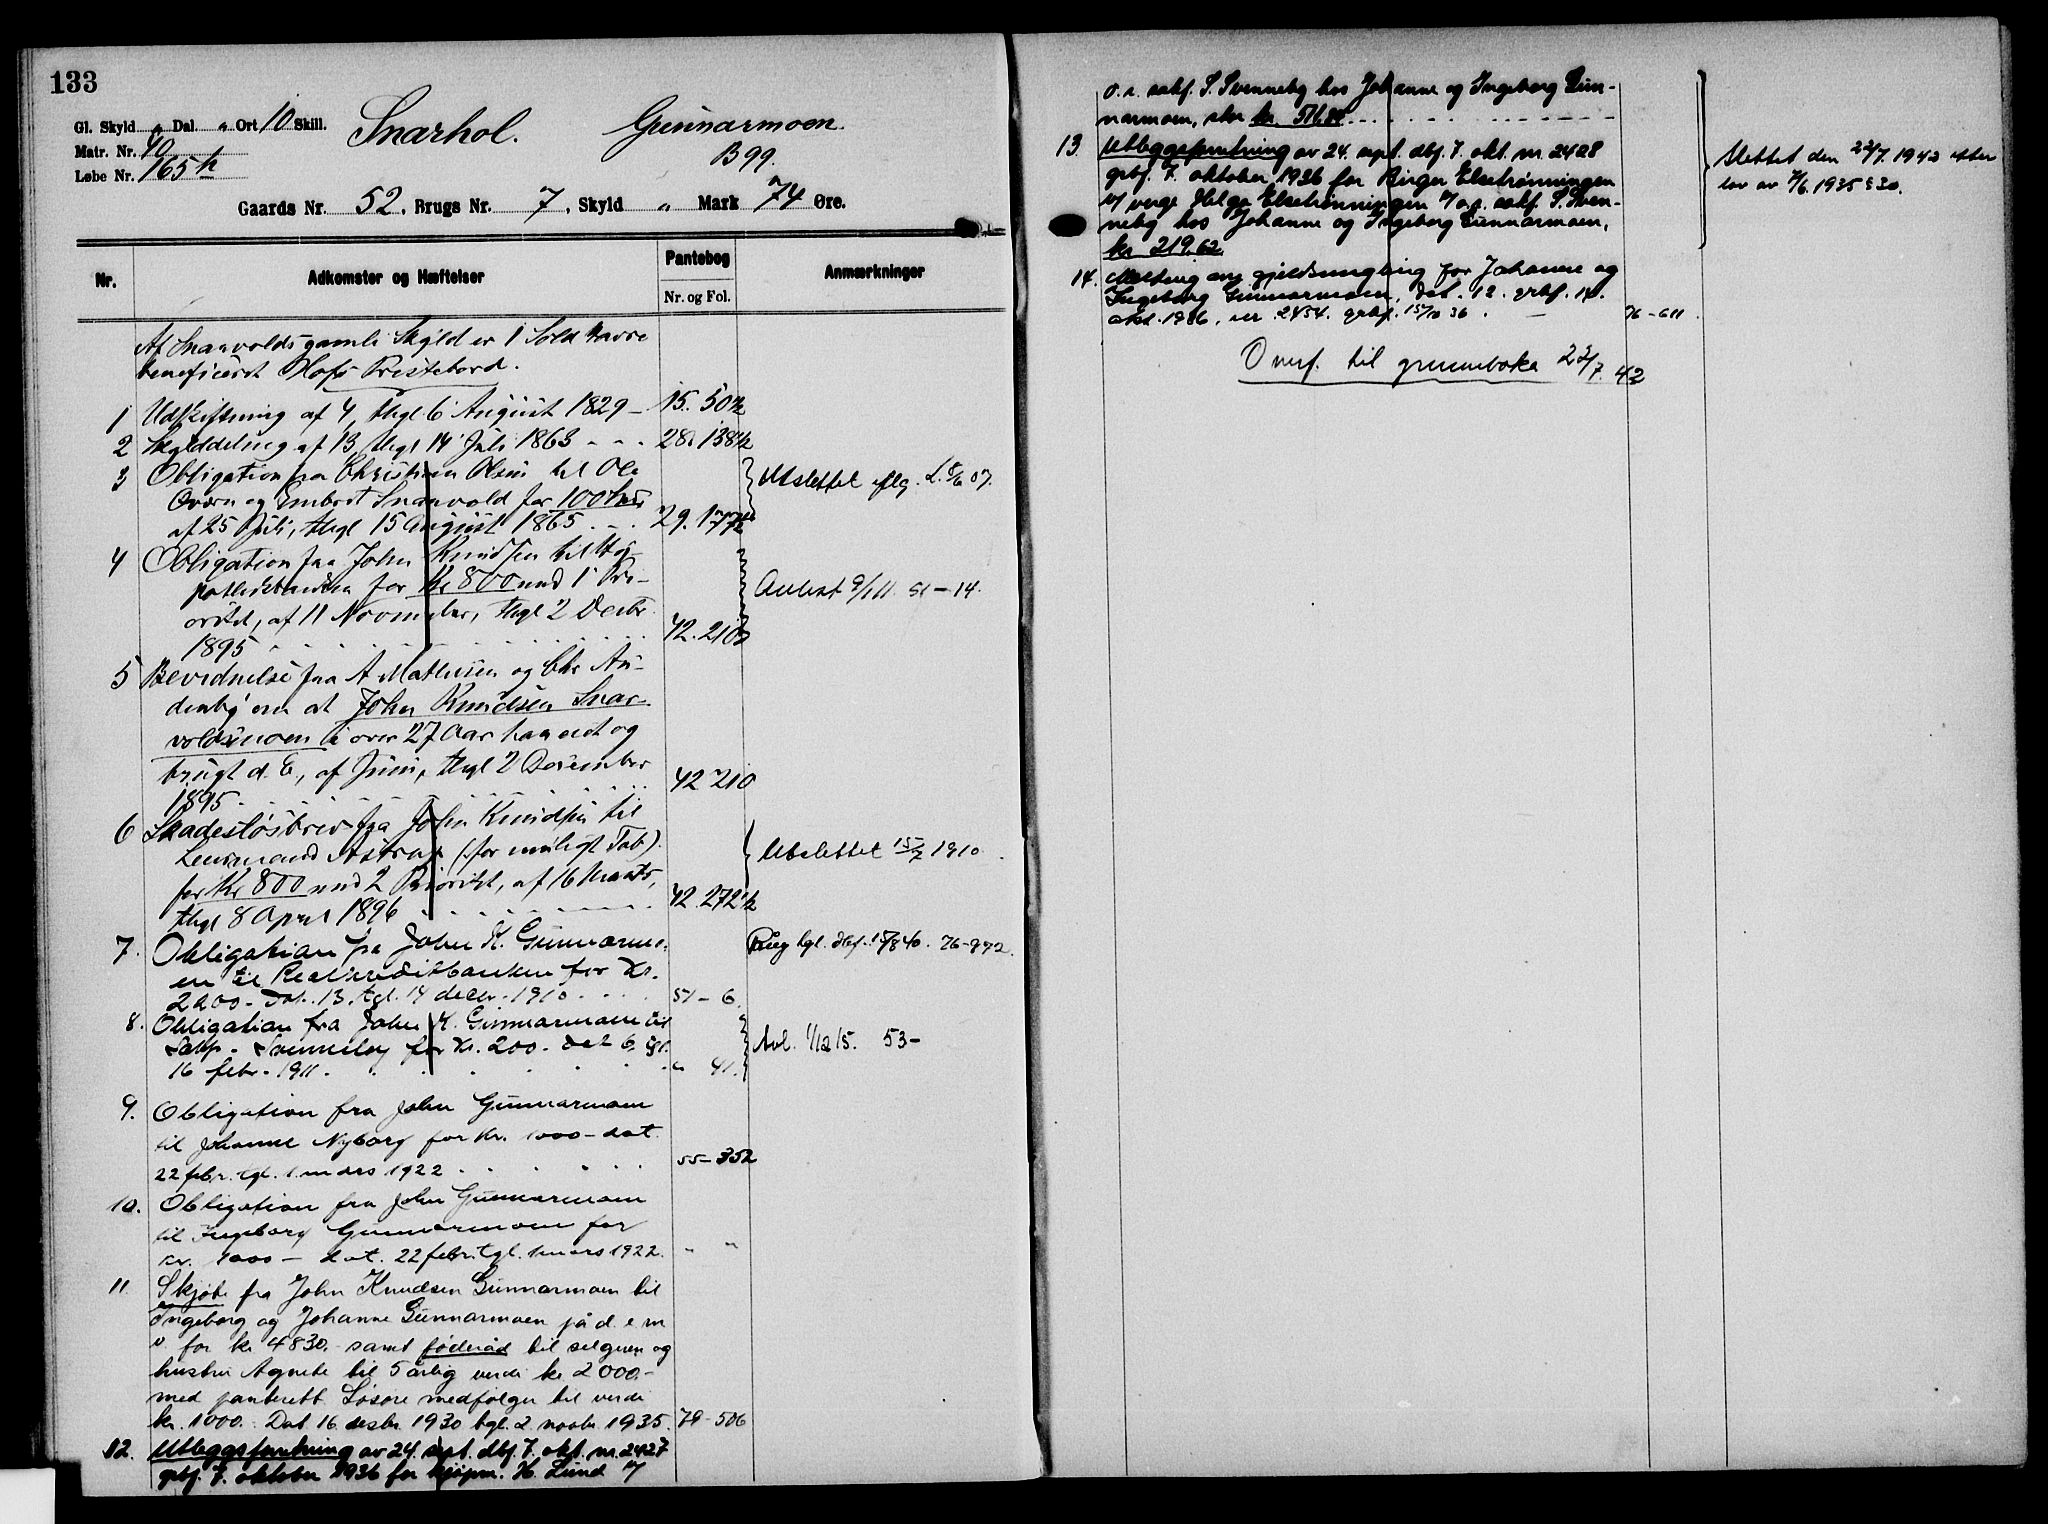 133
Gl. Skyld " Dal. " Ort 10 Skill.
Matr. Nr. 40
Løbe Nr. 165 h
Snarhol. Gunnarmoen.
B 99.
Gaards Nr. 52, Brugs Nr. 7, Skyld " Mark 74 Øre.
Nr. Adkomster og Hæftelser Pantebog Anmærkninger
Nr. og Fol.
Af Snarvolds gamle Skyld er 1 Sold Havre
beneficeret Hofs Prestebord.
1 Udskiftning af 4, thgl 6 August 1829 — 15. 50½
2 Skylddeling af 13 thgl 14 Juli 1863 - - - 28. 138½
3 Obligation fra Christian Olsen til Ole
og Embret Snarvold for 100
af 25 Juli, thgl 15 August 1865 - - - 29. 177½
Udslettet iflg. L. 8/6 07.
4 Obligation fra John Knudsen til Hy-
pothekbanken for Kr 800 med 1 Pri-
oritet, af 11 November, thgl 2 Decbr
1895 42. 210
Avlest 9/1 11. 51 — 14.
5 Bevidnelse fra A Mathisen og Chr
om at John Knudsen Snar-
voldsmoen i over 27 Aar har eiet og
brugt d. E., af Juni, thgl 2 December
1895 42 210
6 Skadesløsbrev fra John Knudsen til
Lensmand Astrup (for muligt Tab)
for Kr 800 med 2 Prioritet, af 16 Marts,
thgl 8 April 1896 42. 272½
Udslettet 15/7 1910.
7. Obligation fra John K. Gunnarmo-
en til Realkreditbanken for Kr.
2200 - dat. 13. tgl. 14 decbr. 1910 51 — 6.
tgl. dbf. 15/8 40. 76-972.
8. Obligation fra John K. Gunnarmoen til
Sakf. Svenneby for Kr. 200 - dat 6. tgl.
16 febr. 1911. " 41.
Avl. 1/12 15. 53 —
9. Obligation fra John Gunnarmoen
til Johanne Nyborg for Kr. 1000 — dat.
22 febr. tgl. 1. mars 1922 55 — 352
10. Obligation fra John Gunnarmoen
til Ingeborg Gunnarmoen for
Kr. 1000 — dat. 22 febr. tgl. 1 mars 1922. " "
11. Skjøte fra John Knudsen Gunnarmoen til
Ingeborg og Johanne Gunnarmoen på d. e m
v for kr 4830.- samt føderåd til selgeren og
hustru Agnete til 5 årlig verdi kr 2000.-
med panterett. Løsøre medfølger til verdi
kr. 1000.- Dat 16 desbr 1930 tgl. 2 novbr 1935. 79 - 506
12. Utleggsforretning av 24. sept. dbf. 7. okt. nr. 2427
grbf. 7. oktober 1936 for kjøpm. H. Lund v/
o.r. sakf. S. Svenneby hos Johanne og Ingeborg Gun-
narmoen, stor kr. 511,80
13. Utleggsforretning av 24. sept. dbf. 7. okt. nr 2428
grbf. 7. oktober 1936 for Birger Elsetrønningen
v/ verge Helga Elsetrønningen v/ o.r. sakf. S. Sven-
neby hos Johanne og Ingeborg Gunnarmoen,
kr 219.62
Slettet den 22/7 1942 etter
lov av 7/6 1935 § 30.
14. Melding om gjeldsmegling for Johanne og
Ingeborg Gunnarmoen, dat. 12. grbf. 14.
okt. 1936, nr. 2454. grbf. 15/10 36. — 76 - 611.
Overf. til grunnboka 22/7. 42